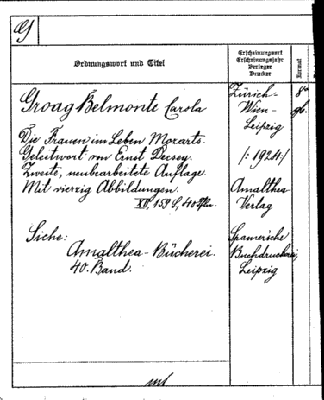 G
Ordnungswort und Titel
Erscheinungsort
Erscheinungsjahr
Verleger
Drucker
Format
Groag Belmonte Carola
Die Frauen im Leben Mozarts.
Geleitwort von Ernst Decsey.
Zweite, neubearbeitete Auflage
Mit vierzig Abbildungen.
XV, 159 S, 40
Siehe:
Amalthea-Bücherei.
40. Band.
Zürich-
Wien-
Leipzig
/:1924:/
Amalthea-
Verlag
Spamersche
Buchdruckerei,
Leipzig
8°